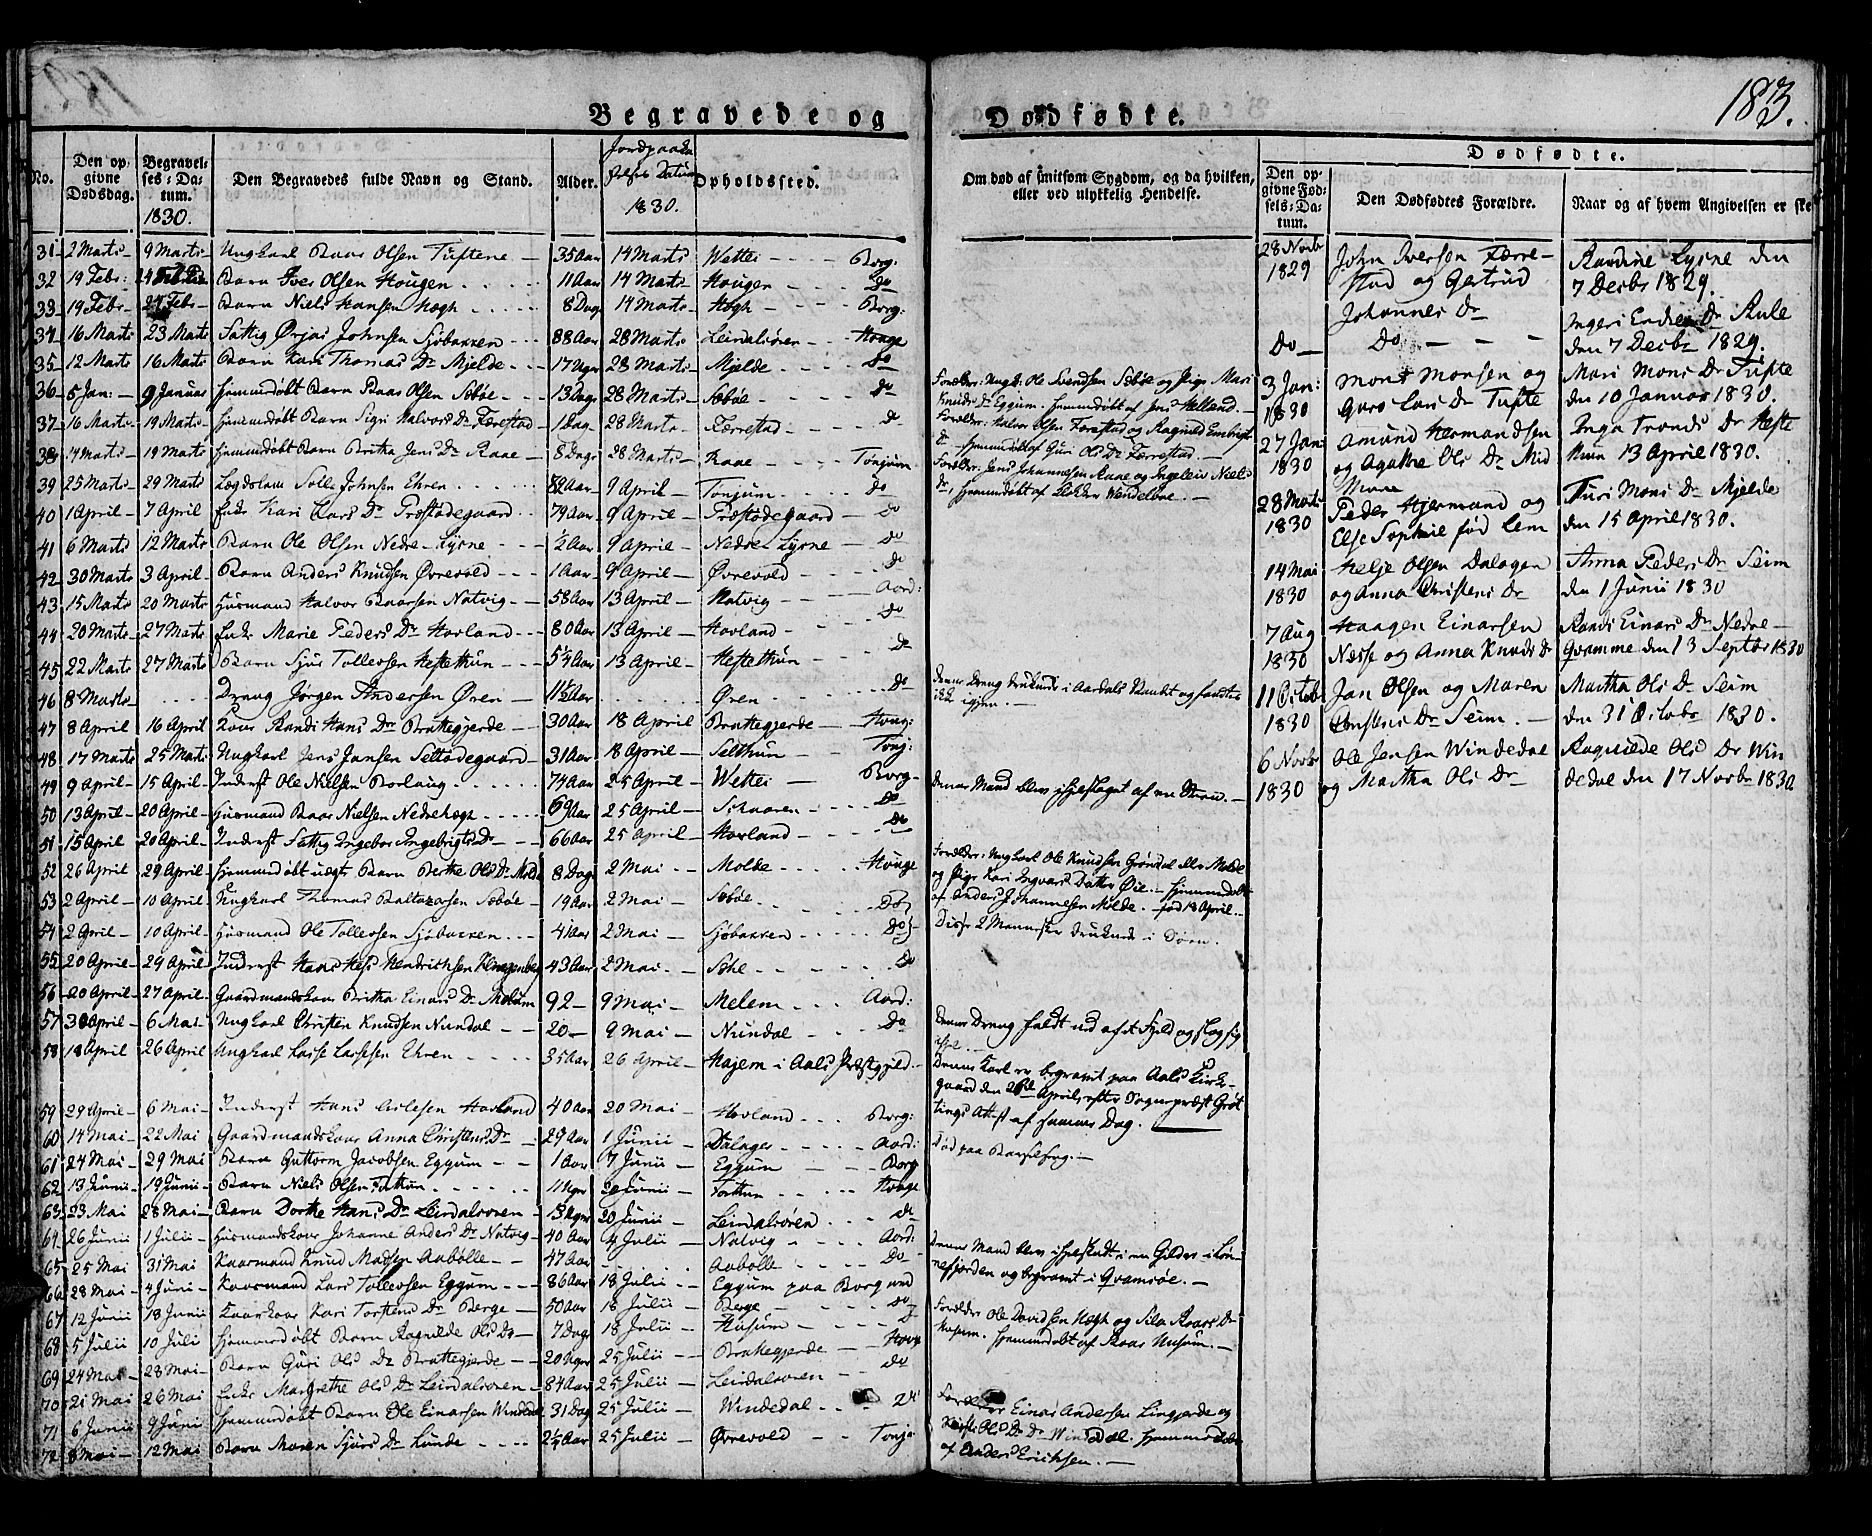 183.
Begravede og Dødfødte.
No.
Den opgivne Dødsdag.
Begravelses-Datum. 1830.
Den Begravedes fulde Navn og Stand.
Alder.
Jordpaakastelses Datum 1830.
Opholdssted.
Om død af smitsom Sygdom, og da hvilken, eller ved ulykkelig Hendelse.
Dødfødte.
Den opgivne Fødsels-Datum.
Den Dødfødtes Forældre.
Naar og af hvem Angivelsen er ske
31 2 Marts 9 Marts Ungkarl Baar Olsen Tuftene 35 Aar 14 Marts Wettei Borg:
32 19 Febr: Barn Iver Olsen Hougen 11 Aar 14 Marts Hougen Do
33 19 Febr 24 Febr Barn Niels Hansen Høgh 8 Dage 14 Marts Høgh Borg:
34 16 Marts 23 Marts Fattig Ørjas Johnsen Sjøbakken 88 Aar 28 Marts Leirdalsøren Houge
35 12 Marts 16 Marts Barn Kari Thomas Dr Mjelde 17 Uger 28 Marts Mjelde Do
36 5 Jan: 9 Januar hjemmdøbt Barn Baar Olsen Sæbøe 13 Dage 28 Marts Sæbøe do
37 16 Marts 19 Marts hjemmdøbt Barn Sigri Halvors Dr Færestad 1 Dag 28 Marts Færrestad d
38 7 Marts 19 Marts hjemmdøbt Barn Britha Jens Dr Raae 8 Dage 28 Marts Raae Tonjum
39 25 Marts 29 Marts Lægdslem Solle Johnsen Ehren 82 Aar 9 April Tonjum Do
40 1 April 7 April Enke Kari Lars Dr Præstødegaard 79 Aar 9 April Præstødegaard do
41 6 Marts 12 Marts Barn Ole Olsen Nedre Lysne ½ Aar 9 April Nedre Lysne Do
42 30 Marts 3 April Barn Anders Knudsen Øvrevold 1 Aar 9 April Øvrevold do
43 15 Marts 20 Marts Husmand Halvor Baarsen Natvig 58 Aar 13 April Natvig Aard:
44 20 Marts 27 Marts Enke Marie Peders Dr Hovland 80 Aar 13 April Hovland Do
45 22 Marts 27 Marts Barn Sjur Tollefsen Hestethun 5¼ Aar 13 April Hestethun d
46 8 Marts Dreng Jørgen Andersen Øren 11½ Aar Øren Do
47 8 April 16 April Kone Randi Hans Dr Brattegjerde 30 Aar 18 April Brattegjerde Houg:
48 17 Marts 25 Marts Ungkarl Jens Jansen Seltødegaard 31 Aar 18 April Selthun Tonj:
49 9 April 15 April Inderst Ole Nielsen Borlaug 74 Aar 25 April Wettei Borg
50 13 April 20 April Husmand Baar Nielsen Nedrehøgh 69 Aar 25 April Skaaren Do
51 15 April 20 April Inderst Fattig Ingebor Ingebrigts Dr 66 Aar 25 April Hovland Do
52 26 April 29 April hjemmdøbt uægt Barn Berthe Ols Dr Molde 8 Dage 2 Mai Molde Houge
53 2 April 10 April Ungkarl Thomas Baltazarsen Sæbøe 19 Aar 2 Mai Sæbøe Do
54 2 April 10 April Husmand Ole Tollefsen Sjøbakken 41 Aar 2 Mai Sjøbakken Do
55 20 April 29 April Inderst Hans Hendrichsen Klingenberg 43 Aar 2 Mai Do
56 20 April 27 April Gaardmandskone Britha Einars Dr Melum 92 9 Mai Melem Aard:
57 30 April 6 Mai Ungkarl Christen Knudsen Nundal 20 9 Mai Nundal Do
58 18 April 26 April Ungkarl Lasse Lassesen Ehren 35 Aar 26 April Hajem i Aals Præstegjeld
59 29 April 6 Mai Inderst Hans Arlesen Hovland 40 Aar 20 Mai Hovland Borg:
60 14 Mai 22 Mai Gaardmandskone Anna Christens Dr 29 Aar 1 Junii Dalager Aard:
61 24 Mai 29 Mai Barn Guttorm Jacobsen Eggum 1 Aar 7 Junii Eggum Borg
62 13 Junii 19 Junii Barn Niels Olsen Tothun 11 Uger 20 Junii Totthun Houge
63 23 Mai 28 Mai Barn Dorthe Hans Dr Leirdalsøren 13 Uger 20 Junii Leirdalsøren do
64 26 Junii 1 Julii Husmandskone Johanne Anders Dr Natvig 40 Aar 4 Julii Natvig Aard:
65 25 Mai 31 Mai Kaarmand Knud Madsen Aabølle 47 Aar Aabølle Do
66 28 Mai 4 Juni Kaarmand Lars Tollevsen Eggum 86 Aar 18 Julii Eggum paa Borgund
67 12 Junii 18 Junii Kaarkone Kari Torstens Dr Berge 50 Aar 18 Julii Berge Do
68 5 Julii 10 Juli hjemmdøbt Barn Ragnilde Ols Dr 7 Dage 18 Julii Husum D
69 24 Mai 28 Mai Barn Guri Ols Dr Brattegjerde 20 Uger 25 Julii Brattegjerde Houg
70 21 Mai 26 Mai Enke Margrethe Ols Dr Leirdalsøren 84 Aar 25 Julii Leirdalsøren do
71 6 Junii 9 Juni hjemmdøbt Barn Ole Einarsen Windedal 31 Dag 25 Julii Windedal do
72 8 Mai 12 Mai Barn Maren Sjurs Dr Lunde 2¼ Aar 25 Julii Øvrevold Tonj
Forældre: Ungk: Ole Svendsen Sæbøe og Pige Mari
Knuds Dr Eggum. hjemmdøbt af Jens Helland.
Forældre: Halvor Olsen Færestad og Ragnild Embrigts
Dr hjemmdøbt af Guri Ols Dr Færrestad.
Forældre: Jens Johannesen Raae og Ingeleiv Niels
Dr, hjemmdøbt af Wendelboe.
Denne Dreng druknede i Aardals Vandet og fandtes
ikke igjen.
Denne Mand blev ihjelslaget af en Steen.
Forældre: Ungkarl Ole Knudsen Grøndal eller Molde
og Pige Kari Ingvars Datter Øie. hjemmedøbt
af Anders Johannesen Molde. fød 18 April.
Disse 2 Mennesker druknede i Søen.
Denne Dreng faldt ud af et Fjeld og slog sig
ihjel.
Denne Karl er begravet paa Aals Kirke-
gaard den 26de April, efter Sogne præst Grøt
tings Attest af samme Dag.
Død paa Barselseng.
Denne Mand blev ihjelskudt i en Gilder i Løn-
nefjorden og begravet i Qvamsøe.
Forældre Ole Davidsen Høgh og Sila Roars Dr
Husum. hjemmdøbt af Roar Husum.
Forældre Einar Andersen Lingjerde og
Kirsti Ols Dr Windedal. hjemmedøbt
af Anders Erichsen.
28 Novb 1829 John Iversen Færre-
stad og Gertrud
Johannes Dr
Randine Lysne den
7 Decbr 1829.
Do Do
Ingeri Endres Dr Rule
den 7 Decbr 1829.
3 Jan: 1830 Mons Monsen og
Guro Lars Dr Tufte
Mari Mons Dr Tufte
den 10 Januar 1830.
27 Jan: 1830 Amund Hermandsen
og Agathe Ols Dr Mid
Moe
Inga Tronds Dr Heste
thun 13 April 1830.
28 Marts 1830 Peder Hjermand og
Else Sophie fød Lem
Turi Mons Dr Mjelde
den 15 April 1830.
14 Mai 1830 Helje Olsen Dalagen
og Anna Christens Dr
Anna Peders Dr Seim
den 1 Junii 1830
7 Aug 1830 Haagen Einarsen
Næsse og Anna Knuds Dr
Randi Einars Dr Nedre
Qvamme den 13 Septbr 1830
11 Octobr 1830 Jan Olsen og Maren
Christens Dr Seim.
Martha Ols Dr Seim
den 31 Octobr 1830.
6 Novbr 1830 Ole Jensen Windedal
og Martha Ols Dr
Ragnilde Ols Dr Win
dedal den 17 Novbr 1830